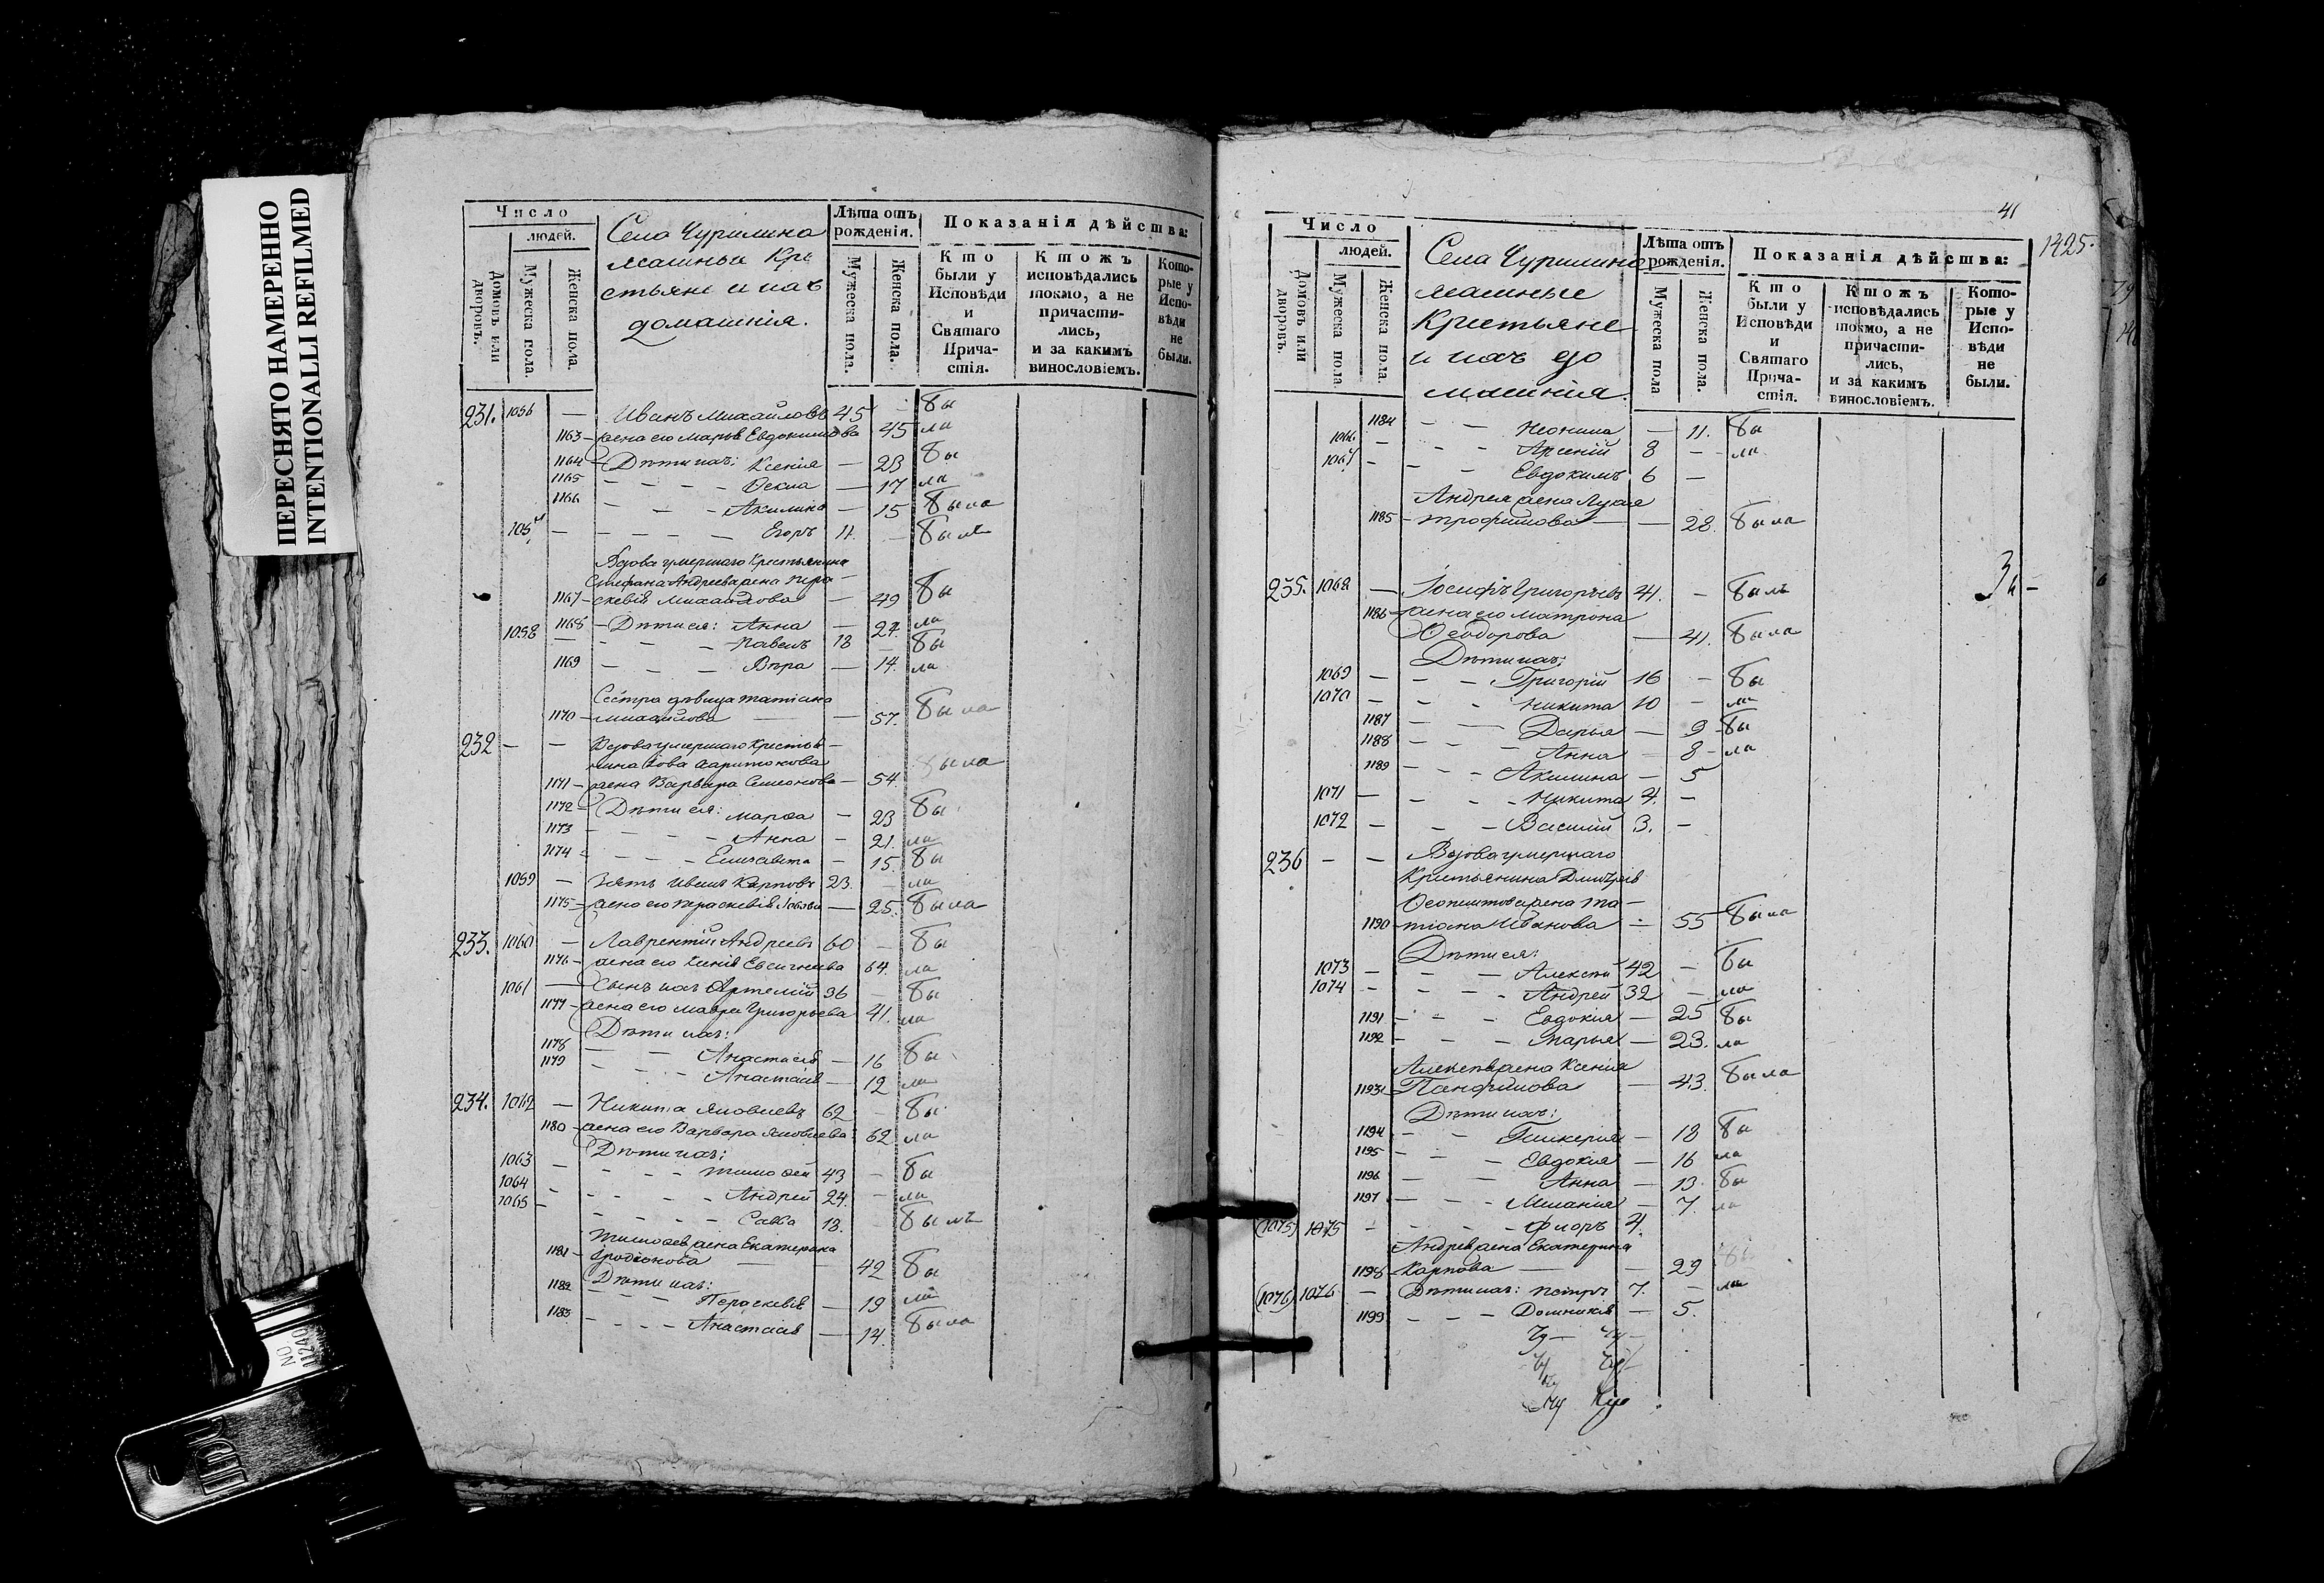 ПЕРЕСНЯТО НАМЕРЕННО
INTENTIONALLI REFILMED
NO
11240
Число
людей.
Домовъ или дворовъ.
Мужеска пола.
Женска пола.
Села Чурилина
Кре
стьяне и ихъ
домашнія.
Лѣта отъ рожденія.
Мужеска пола.
Женска пола.
Показанія дѣйства:
Кто были у Исповѣди и Святаго Причастія.
Ктожъ исповѣдались токмо, а не причастились, и за какимъ винословіемъ.
Которые у Исповѣди не были.
231. 1056 — Иванъ Михайловъ 45 — бы
1163 — жена его Марья Евдокимова 45 ла
1164 — Дѣти ихъ: Ксенія — 23 бы
1165 — Фекла — 17 ла
1166 — Акилина — 15 была
1057 — Егоръ 11. — былъ
Вдова умершаго Крестьянина
Стефана Андреева жена Пара-
1167 — скевія Михайлова — 49 бы
1168 — Дѣти ея: Анна — 27. ла
1058 — Павелъ 18 — бы
1169 — Вѣра — 14. ла
Сестра дѣвица Татіана
1170 — Михайлова — 57. была
232 — — Вдова умершаго Крестья-
нина Харитонова
1171 — жена Варвара Семенова — 54. была
1172 — Дѣти ея: Марѳа — 23 бы
1173 — Анна — 21. ла
1174 — Елисавета — 15. бы
1059 — Зять Карповъ 23. — ла
1175 — жена его Параскевія — 25. была
233. 1060 — Лаврентій Андреевъ 60 — бы
1176 — жена его Ксенія Евсигнеева 64. ла
1061 — Сынъ ихъ Артемій 36 — бы
1177 — жена его Мавра Григорьева 41. ла
Дѣти ихъ:
1178 — Анастасія — 16 бы
1179 — Анастасія — 12 ла
234. 1062 — Никита Яковлевъ 62 — бы
1180 — жена его Варвара Яковлева 62 ла
Дѣти ихъ:
1063 — Тимоѳей 43 — бы
1064 — Андрей 24. — ла
1065 — Савва 18. — былъ
Тимоѳея жена Екатерина
1181 — Иродіонова — 42 бы
1182 Дѣти ихъ:
Параскевія — 19 ла
1183 — Анастасія — 14. была
41
1425.
Число
людей.
Домовъ или дворовъ.
Мужеска пола
Женска пола.
Села Чурилина
Крестьяне
и ихъ до
машнія.
Лѣта отъ рожденія.
Мужеска пола
Женска пола.
Показанія дѣйства:
Кто были у Исповѣди и Святаго Причастія.
Ктожъ исповѣдались токмо, а не причастились, и за какимъ винословіемъ.
Которые у Исповѣди не были.
1184 — Неонила — 11. бы
1066. — Арсеній 8 — ла
1067 — Евдокимъ 6 —
Андрея жена
1185 — Трофимова — 28. была
235. 1068 — Іосифъ Григорьевъ 41. — былъ
1186 — жена его Матрона
Ѳеодорова — 41. была
Дѣти ихъ:
1069 — Григорій 16 — бы
1070 — Никита 10 — ла
1187 — Дарья — 9 бы
1188 — Анна — 8 ла
1189 — Акилина — 5
1071 — Никита 4. —
1072 — Василій 3. —
236 — — Вдова умершаго
Крестьянина
жена Та-
1190 — тіана Иванова — 55 была
Дѣти ея:
1073 — Алексѣй 42 — бы
1074 — Андрей 32 — ла
1191 — Евдокія — 25 бы
1192 — Марья — 23. ла
Алексѣя жена Ксенія
1193 Панфилова — 43. была
Дѣти ихъ:
1194 — Гликерія — 18 бы
1195 — Евдокія — 16 ла
1196 — Анна — 13. бы
1197 — Меланія — 7. ла
(1075) 1075 — Флоръ 4.
Андрея жена Екатерина
1198 — Карпова — 29 бы
(1076) 1076 — Дѣти ихъ: Петръ 7. — ла
1199 — Домникія — 5.